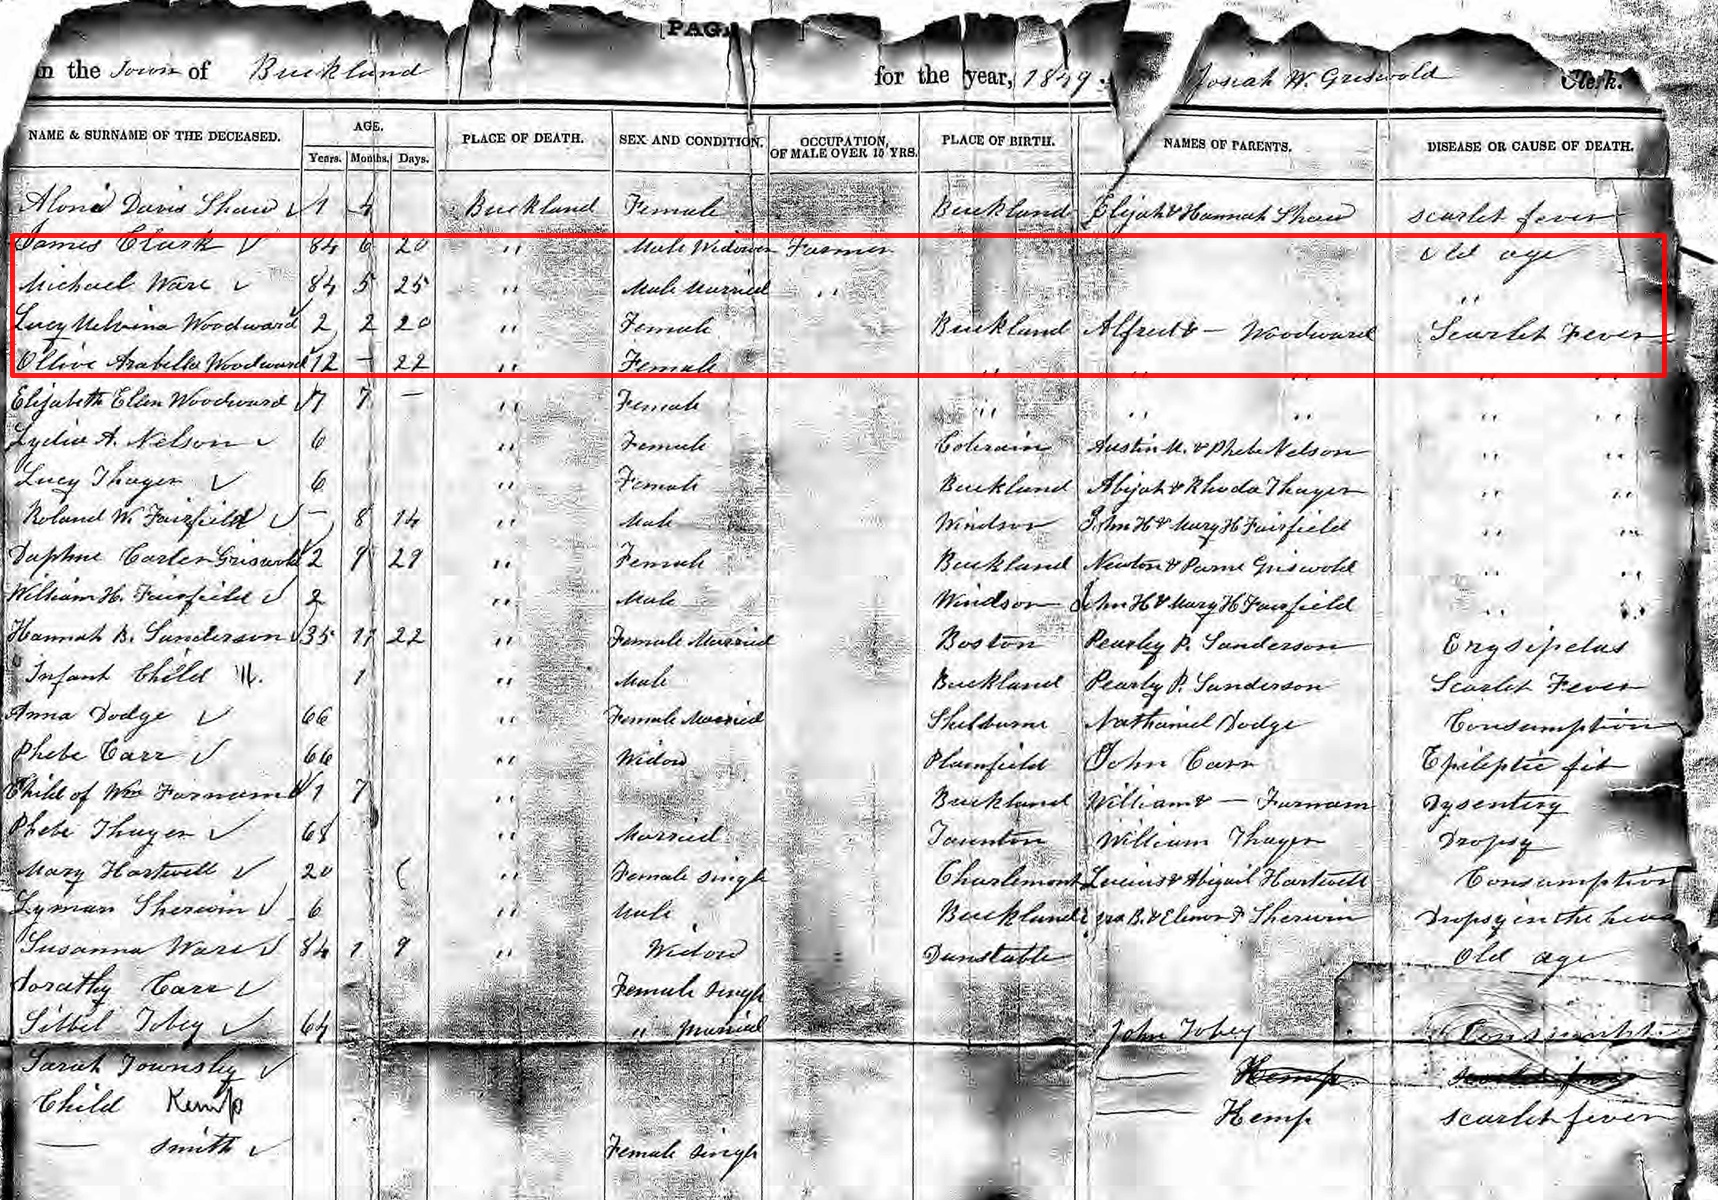 [PAGE ]
in the Town of Buckland for the year, 1849. Josiah W. Griswold Clerk.
NAME & SURNAME OF THE DECEASED. AGE. PLACE OF DEATH. SEX AND CONDITION. OCCUPATION, OF MALE OVER 15 YRS. PLACE OF BIRTH. NAMES OF PARENTS. DISEASE OR CAUSE OF DEATH.
Years. Months. Days.
Davis Shaw ✓ 1 4 Buckland Female Buckland Elijah & Hannah Shaw scarlet fever
James Clark ✓ 84 6 20 " Male Widower Farmer Old age
Michael Ware ✓ 84 5 25 " Male Married " "
Lucy Melvina Woodward ✓ 2 2 20 " Female Buckland Alfred & — Woodward Scarlet Fever
Ollive Arabella Woodward ✓ 12 — 22 " Female " " " " "
Elizabeth Ellen Woodward ✓ 7 7 — " Female " " " " "
Lydia A. Nelson ✓ 6 " Female Colrain Austin M. & Phebe Nelson " "
Lucy Thayer ✓ 6 " Female Buckland Abijah & Rhoda Thayer " "
Roland W. Fairfield ✓ — 8 14 " Male Windsor John H & Mary H Fairfield " "
Daphne Carter Griswold ✓ 2 9 29 " Female Buckland Newton & Parne Griswold " "
William H. Fairfield ✓ 2 " Male Windsor John H & Mary H Fairfield " "
Hannah B. Sanderson ✓ 35 11 22 " Female Married Boston Pearley P. Sanderson Erysipelas
" Infant Child 1 " Male Buckland Pearly P. Sanderson Scarlet Fever
Anna Dodge ✓ 66 " Female Married Shelburne Nathaniel Dodge Consumption
Phebe Carr ✓ 66 " Widow Plainfield John Carr Epileptic fit
Child of Wm Farnam ✓ 1 7 " Buckland William & — Farnam Dysentery
Phebe Thayer ✓ 68 " Married Taunton William Thayer Dropsy
Mary Hartwell ✓ 20 " Female single Charlemont & Abigail Hartwell Consumption
Lyman Sherwin ✓ 6 " Male Buckland B. & Sherwin Dropsy in the head
Susanna Ware ✓ 84 1 9 " Widow Dunstable Old age
Dorathy Carr ✓ Female single
Sibbel Tobey ✓ 64 " Married John Tobey Consumption
Sarah Townsley ✓ — Kemp
Child Kemp — Kemp scarlet fever
— Smith ✓ Female single